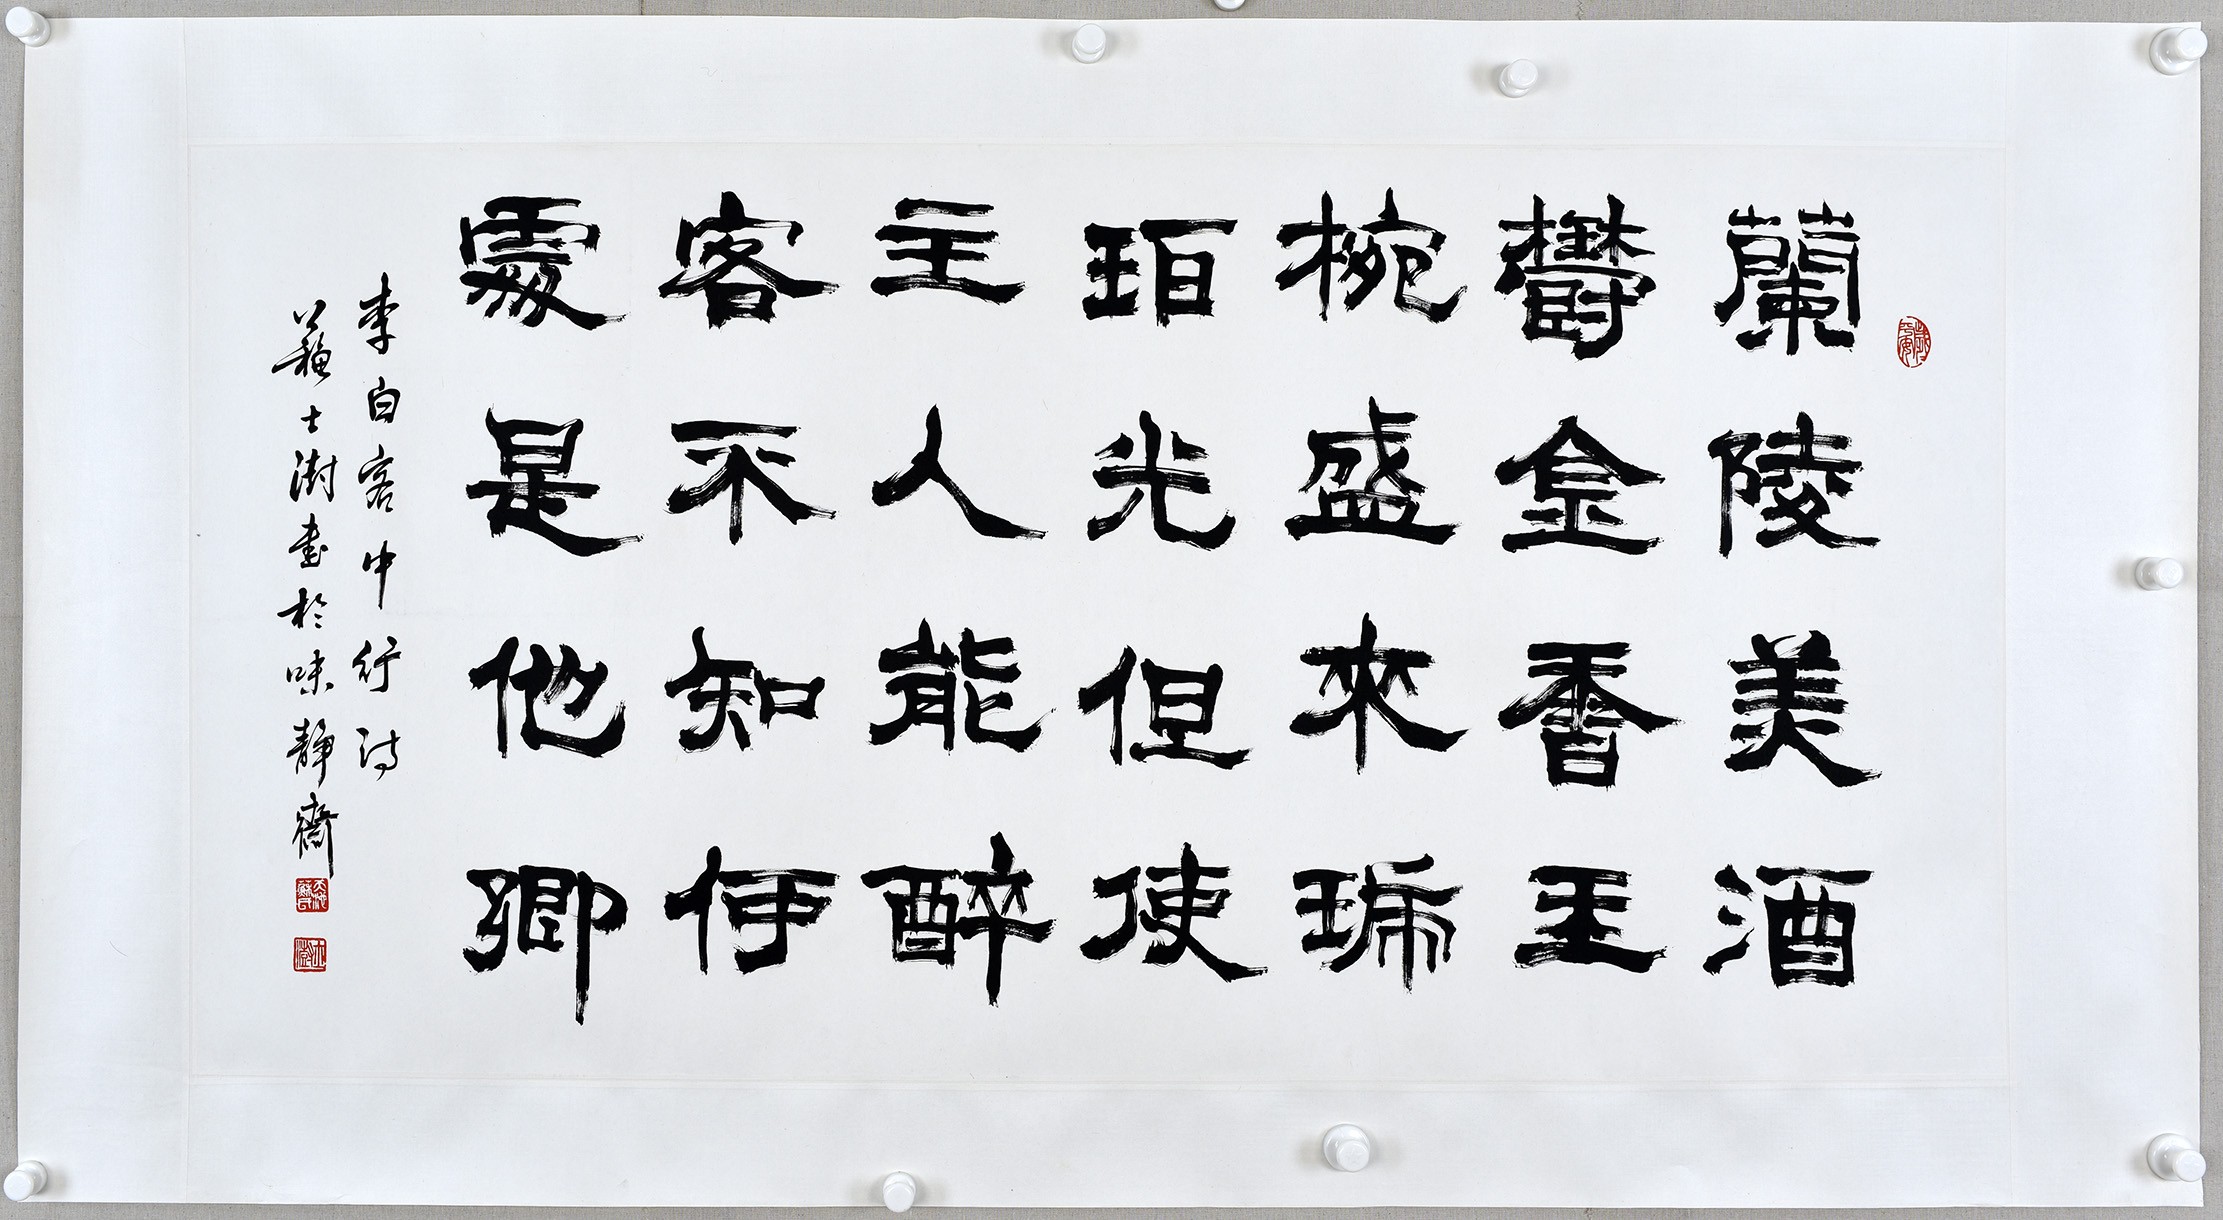 蘭陵美酒
鬱金香玉
椀盛來琥
珀光但使
主人能醉
客不知何
處是他鄉
李白客中行詩
蘇士澍書於味靜齋